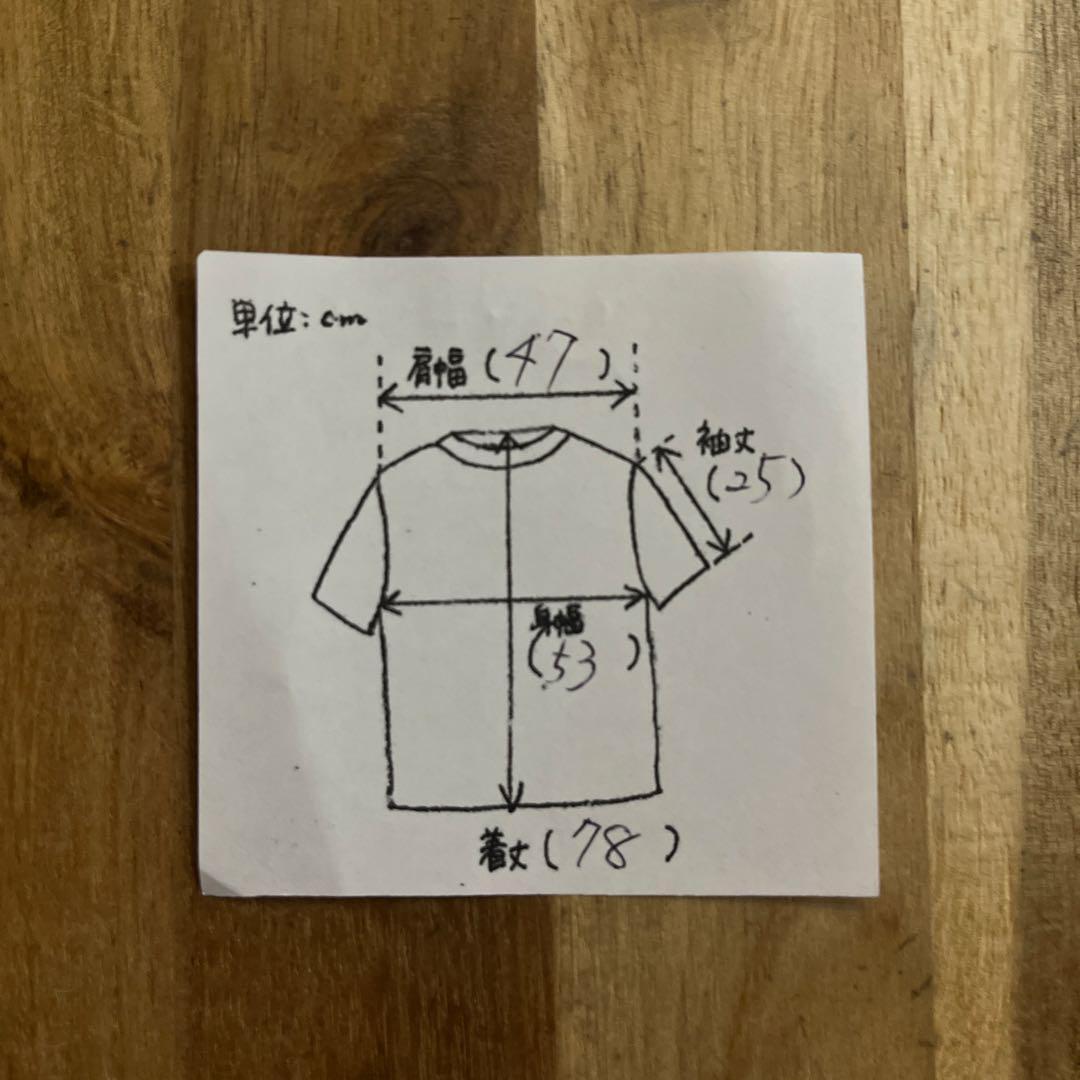 単位:cm
肩幅(47)
袖丈
(25)
身幅
(53)
着丈(78)